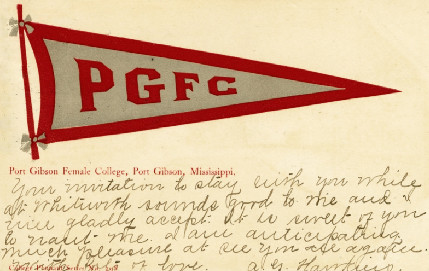 PGFC
Port Gibson Female College, Port Gibson, Mississippi.
Your invitation to stay with you while
at Whitworth sounds good to me and I
will gladly accept. It is sweet of you
to want me. I am anticipating
much pleasure at see you all again.
of love.